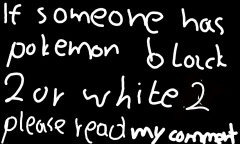 If someone has
pokemon black
2 or white 2
please read my comment